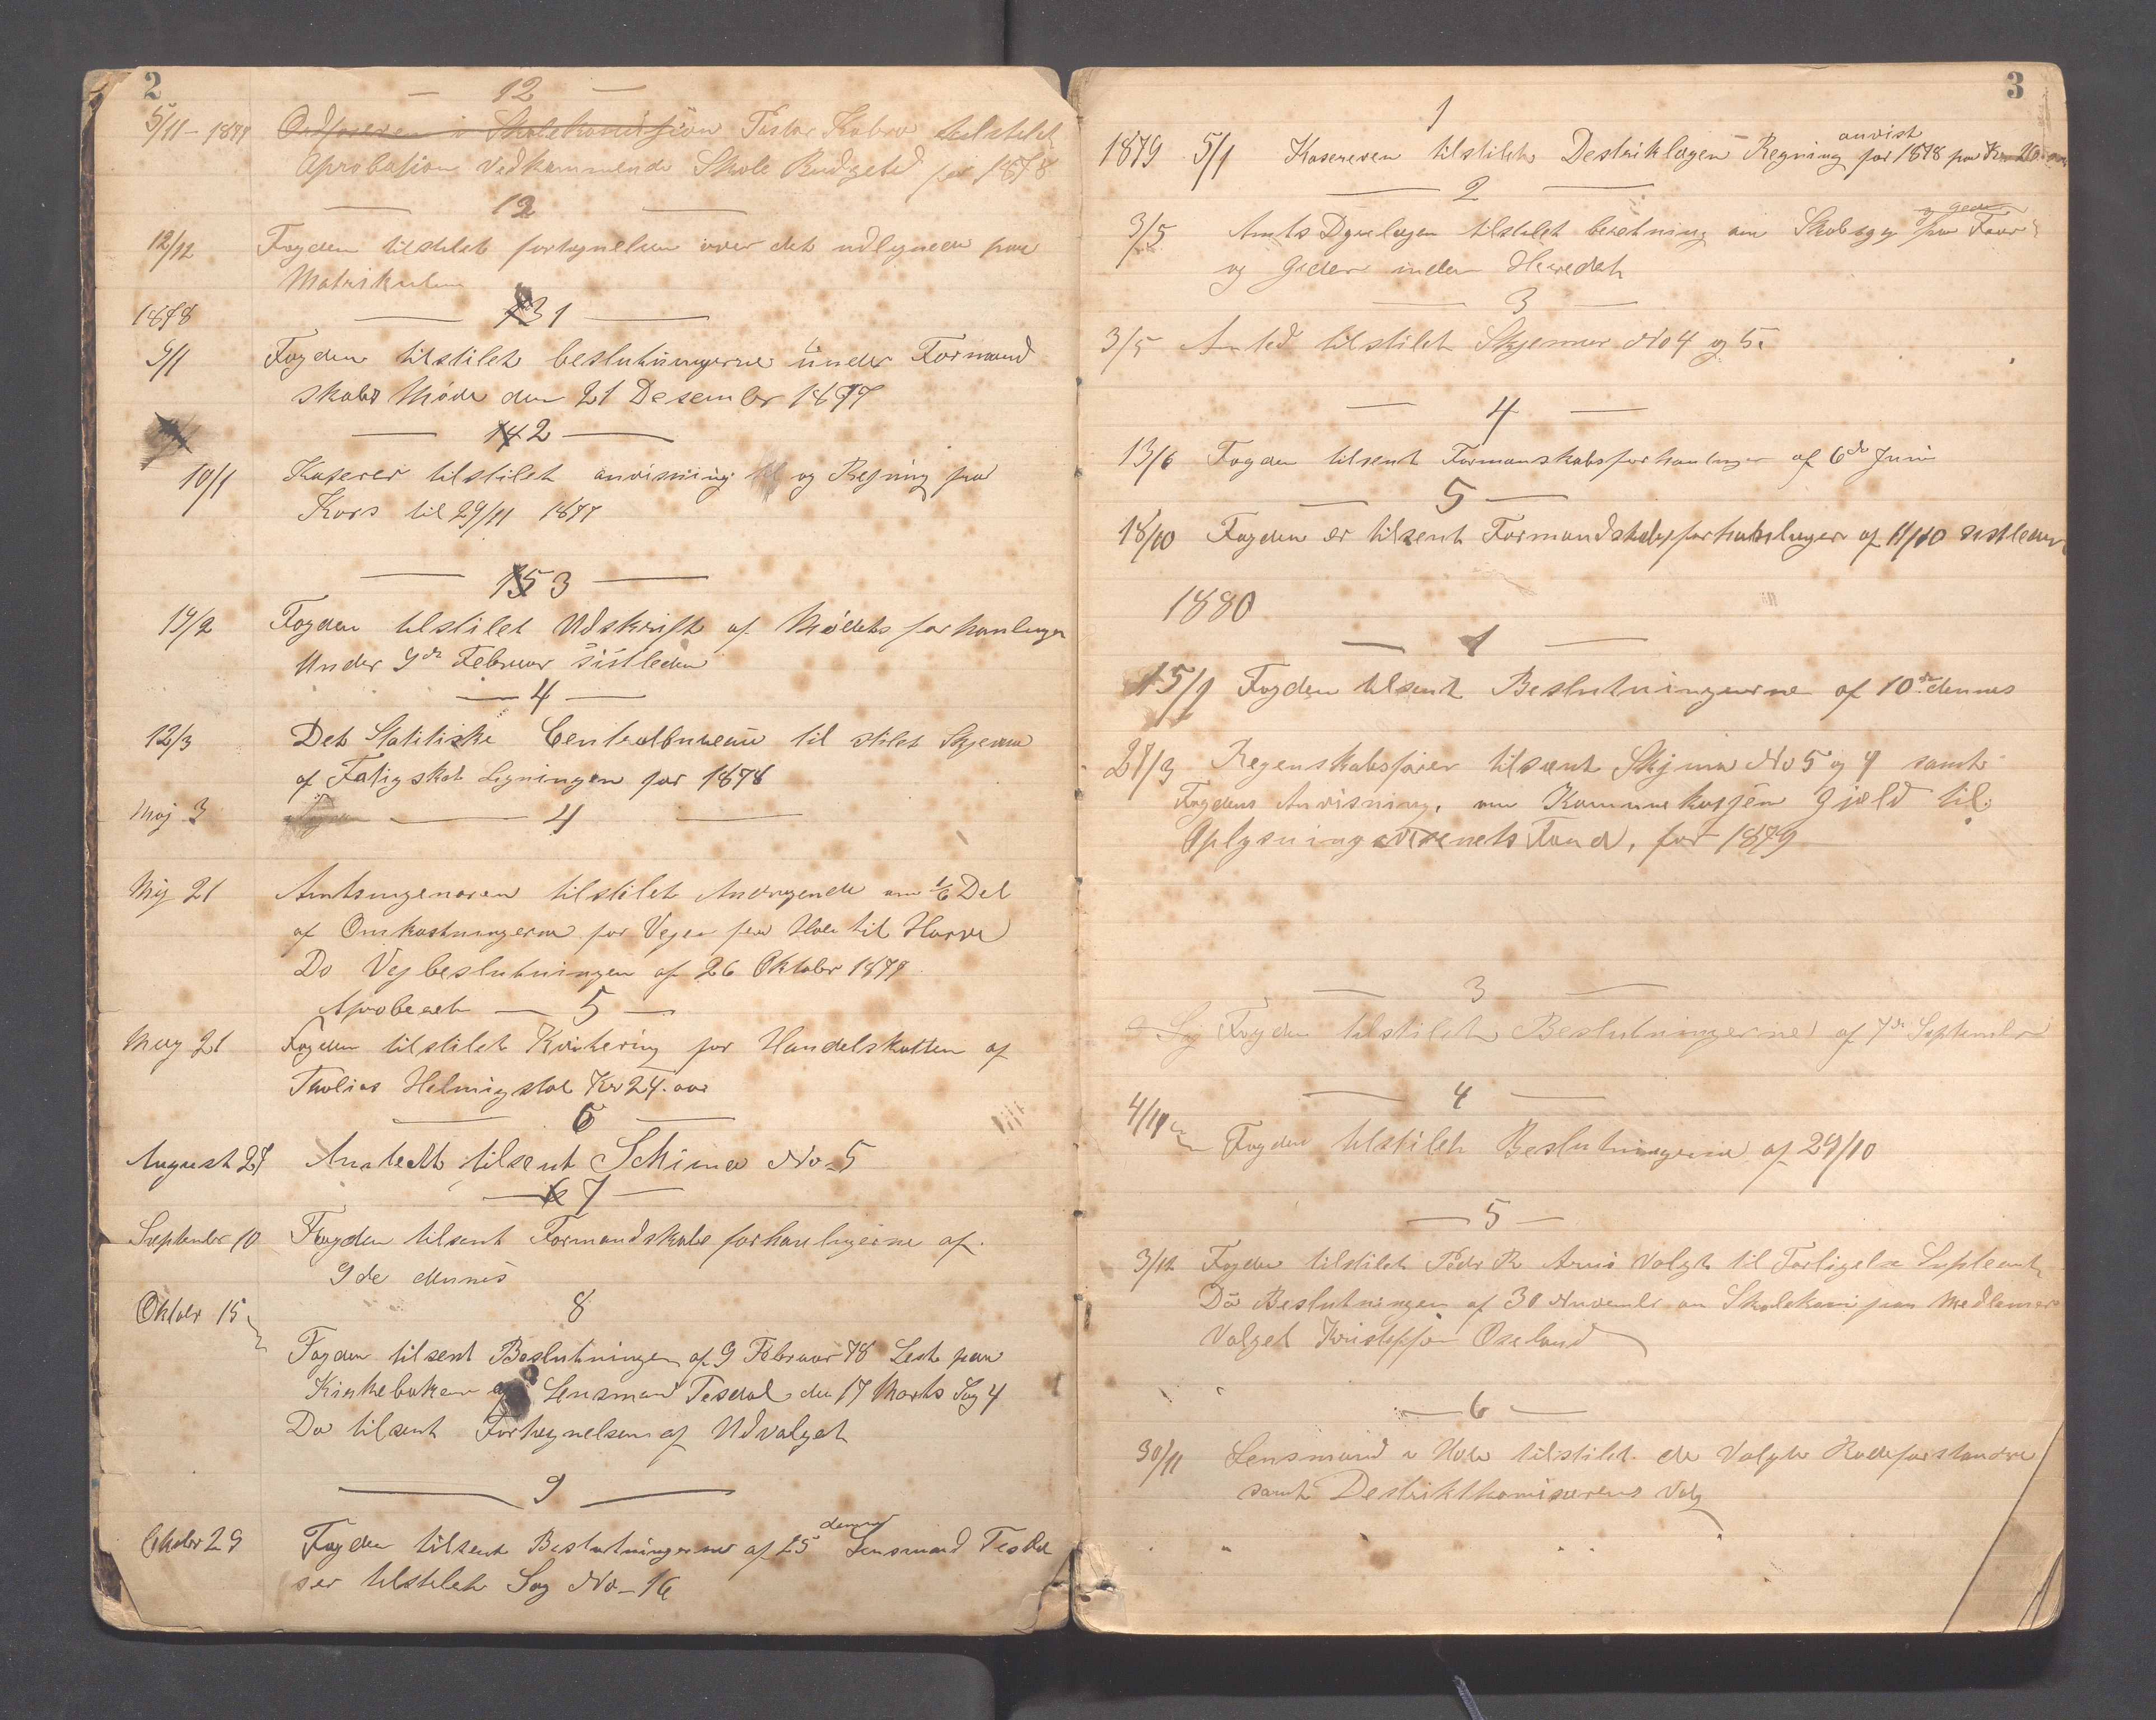 2
12
5/11 - 1877 Ordføreren i Skolekomisjion Pastor tilstilet
Aprobation vedkommende Skole Budgetet for 1878
12
12/12 Fogden tilstilet fortegnelsen over det udlignede paa
Matrikulen
1878
13 1
9/1 Fogden tilstilet beslutningerne under Formand
skabs Møde den 21 Desember 1877
14 2
10/1 Kaserer tilstilet anvisning og Regning fra
Kors til 29/11 1877
15 3
19/2 Fogden tilstilet Udskrift af Mødets forhanlinger
Under 9de Februar sistleden
4
12/3 Det Statistiske Centralbureau til stilet Skjema
af Fatigskat Ligningen for 1878
Maj 3
4
Maj 21 Amtsingenøren tilstilet Andragende om 1/6 Del
af Omkostningerne for Vejen fra Hole til Harve
Do Vejbeslutningen af 26 Oktober 1877
Aprobeert 5
May 21 Fogden tilstilet Kvitering for Handelskatten af
Tholias Helmigstøl Kr 24.00
6
August 27 Amtedt tilsent Schima No 5
6 7
September 10 Fogden tilsent Formandskabs forhanlingerne af
9de dennes
Oktober 15 8
Fogden tilsent Beslutningen af 9 Februar 78 Lest paa
Kirkebakken af Lensmand Tesdal den 17 Marts Sag 4
Do tilsent Fortegnelsen af Udvalget
9
Oktober 29 dennes
Fogden tilsent Beslutningerne af 25 Lensmand Tesdal
ser tilstilet Sag No 16
3
1
anvist
1879 5/1 Kasereren tilstilet Destriklægen Regning for 1878 paa Kr
2
og Geder
3/5 Amts Dyrelægen tilstilet beretning om Skabsyge paa Faar
og Geder inden Heredet
3
3/5 Amted tilstilet Skjemer No 4 og 5.
4
13/6 Fogden tilsent Formanskabsforhanlinger af 6de Juni
5
18/10 Fogden er tilsent Formandskabsforhanlinger af 11/10 sistleden
1880
1
15/1 Fogden tilsent Beslutningerne af 10de dennes
27/3 Regenskabsfører tilsent Skjima No 5 og 9 samt
Fogdens Anvisning, om Kommunekassen Gjæld til
Oplysningsvesenets Fond, for 1879
3
Sag Fogden tilstilet Beslutningerne af 7de September
4
4/11 Fogden tilstilet Beslutningerne af 29/10
5
3/12 Fogden tilstilet Peder R Valgt til Forligelse Supleant
Do Beslutningen af 30 Novembr om Skolekomisjon Medlemer
Valget Kristoffer Oseland
6
30/11 Lensmand i Hole tilstilet de Valgte Rodeforstandre
samt Destriktkomisærens Valg